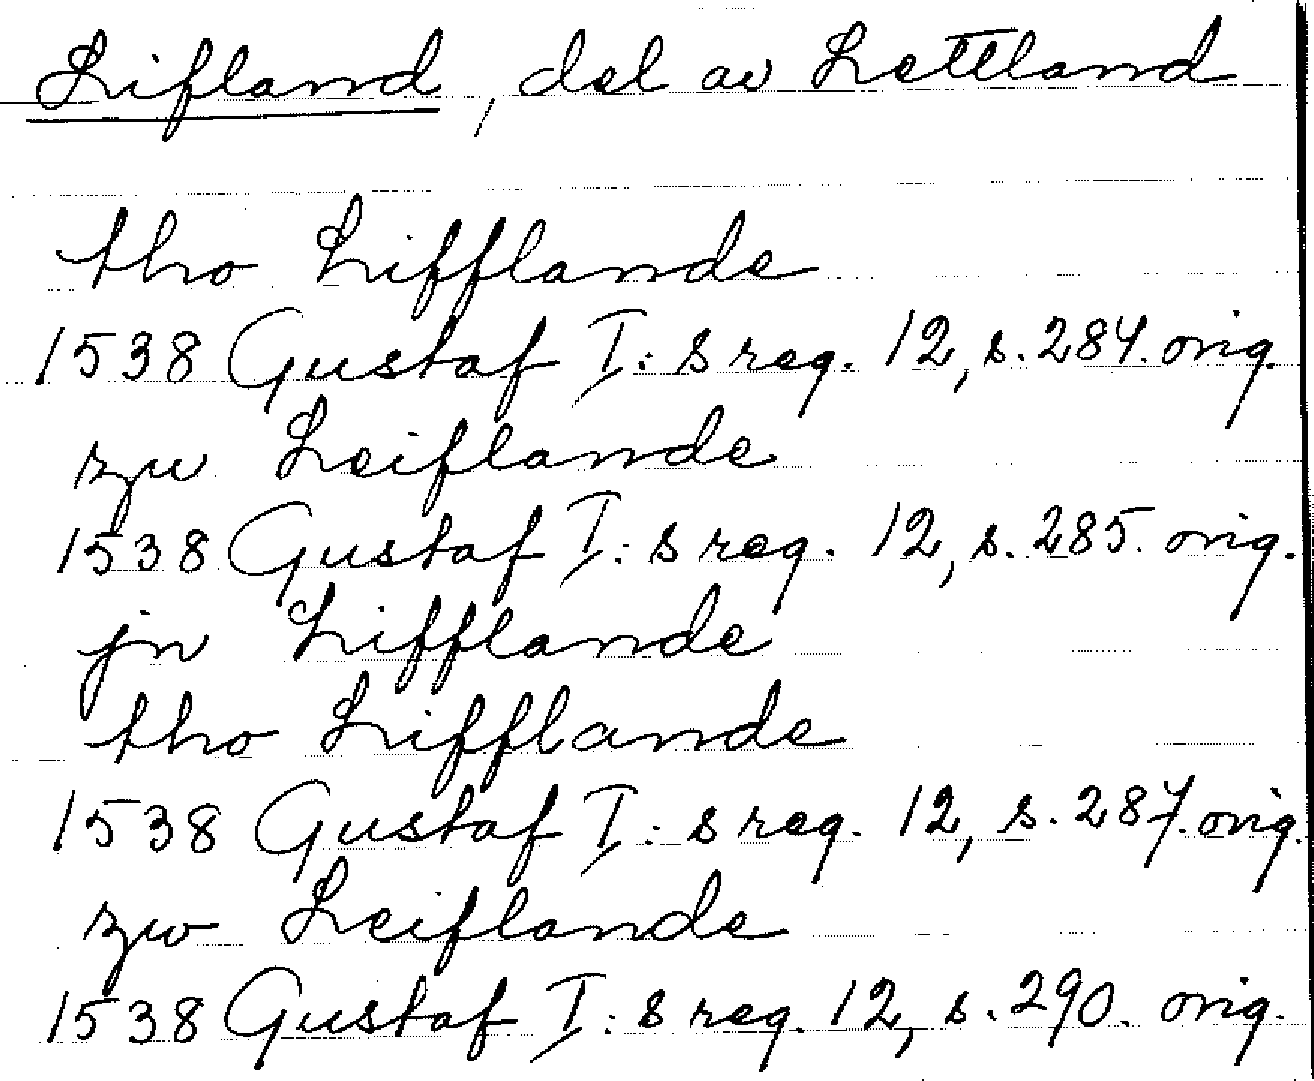 Lifland, del av Lettland
tho Lifflande
1538 Gustaf I:s reg. 12, s. 284. orig.
zu Leiflande
1538 Gustaf I:s reg. 12, s. 285. orig.
jn Lifflande
tho Lifflande
1538 Gustaf I:s reg. 12, s. 287. orig.
zw Leiflande
1538 Gustaf I:s reg. 12, s. 290. orig.